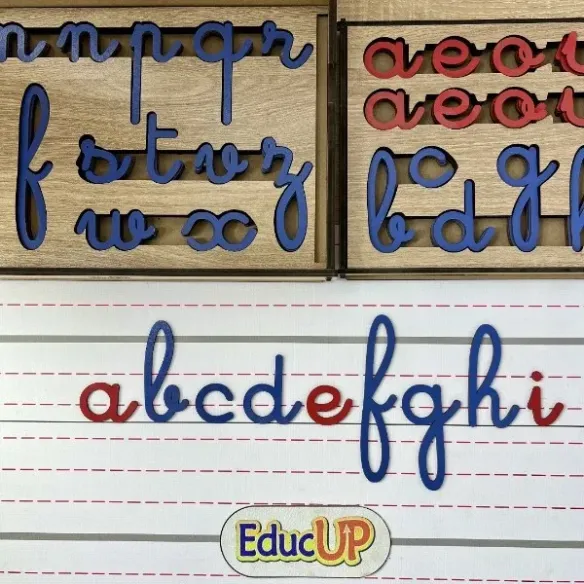 n p q r
f s t v z
w x
a e o
a e o
b c d g
abcdefghi
EducUP